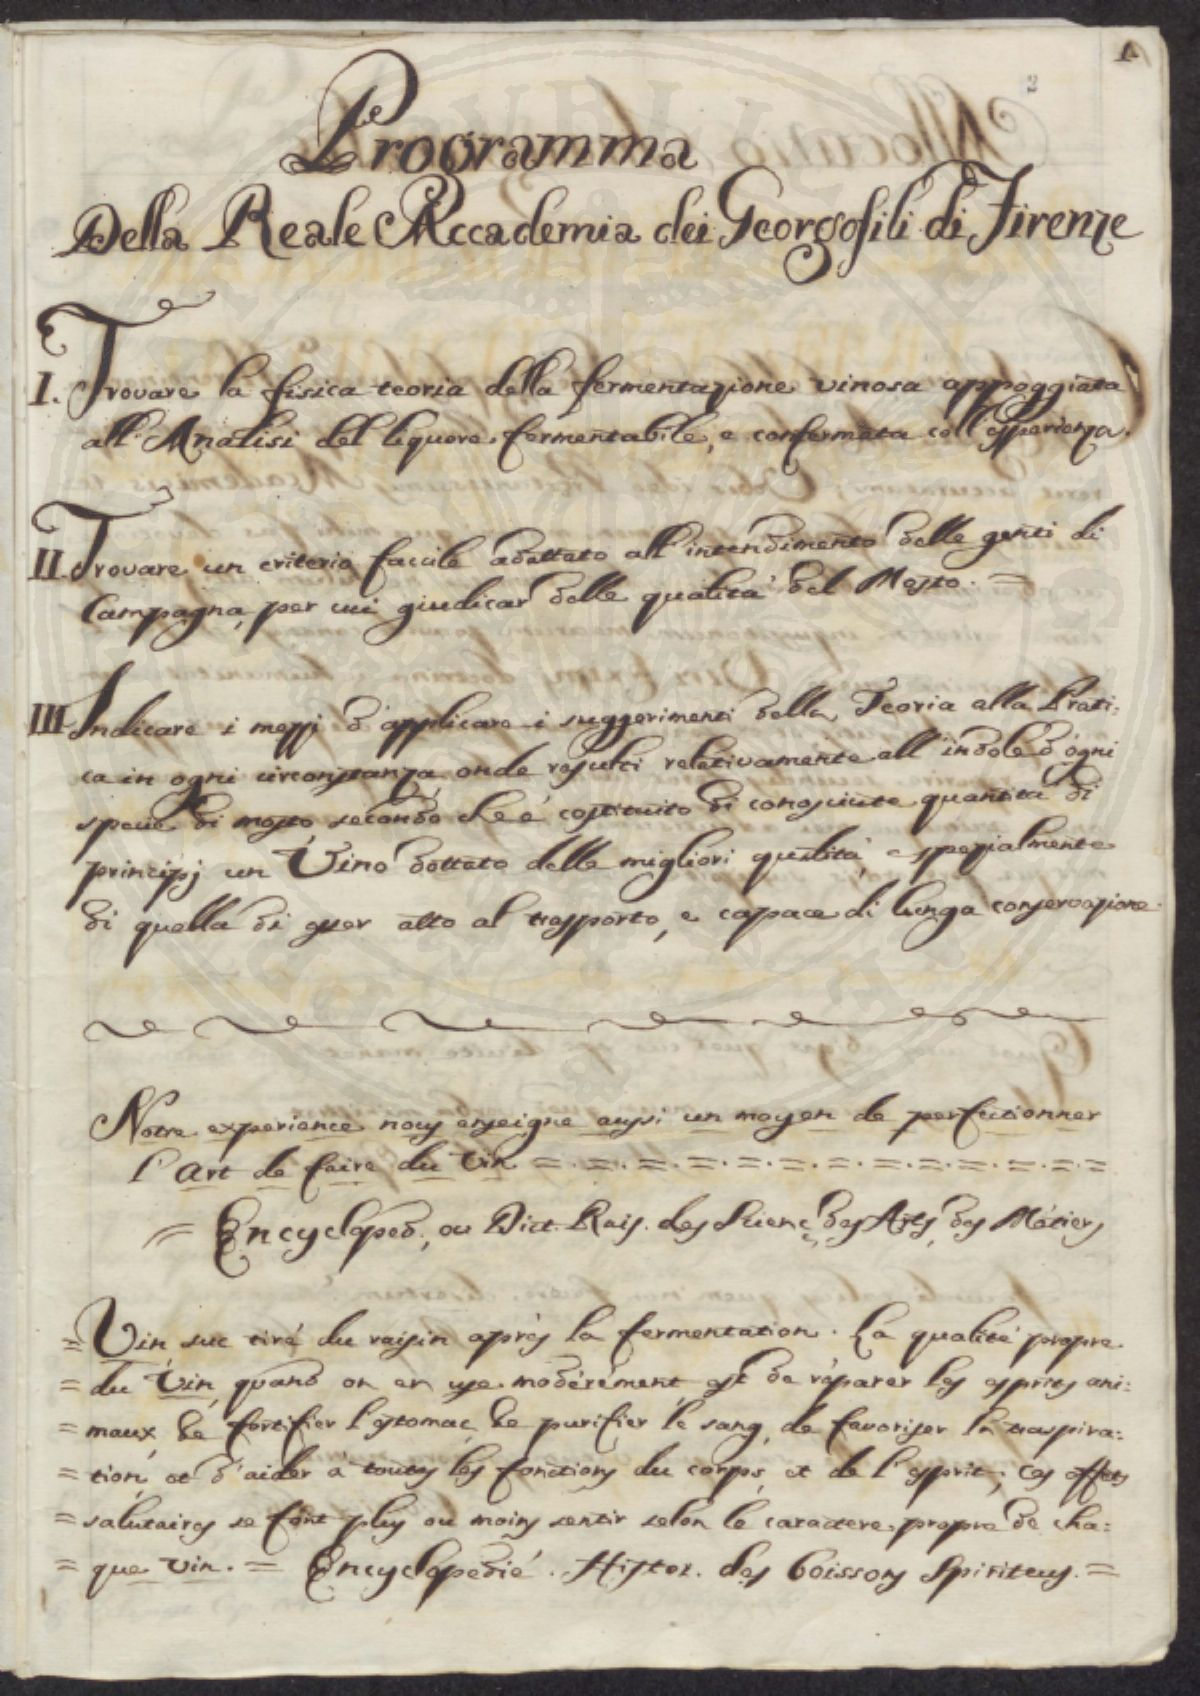 1.
2
Programma
Della Reale Accademia dei Georgofili di Firenze
I. Trovare la fisica teoria della fermentazione vinosa appoggiata
all'Analisi del liquore fermentabile, e confermata coll'esperienza.
II. Trovare un criterio facile adattato all'intendimento delle genti di
Campagna, per cui giudicar delle qualità del Mosto. =
III. Indicare i mezzi d'applicare i suggerimenti della Teoria alla Prati:
ca in ogni circonstanza, onde resulti relativamente all'indole d'ogni
specie di mosto, secondo che è costituito di conosciute quantità di
principj un Vino dottato delle migliori qualità, e spezialmente
di quella di esser atto al trasporto, e capace di lunga conservazione.
Notre experience nous enseigne aussi un moyen de perfectionner
l'Art de faire du Vin = . = . = . = . = . = . = . = . = . = . = . =
= Encycloped., ou Dict. Rais. des Scienc., des Arts, des Métiers
= Vin suc tiré du raisin après la fermentation. La qualité propre
= du Vin, quand on en use modérément est de réparer les esprits ani:
= maux, de fortifier l'estomac, de purifier le sang, de favoriser la traspira:
= tion, et d'aider à toutes les fonctions du corps, et de l'esprit; ces effets
= salutaires se font plus ou moins sentir selon le caractere propre de cha:
= que vin. = Encyclopedié. Histoi. des boissons Spiriteus. =